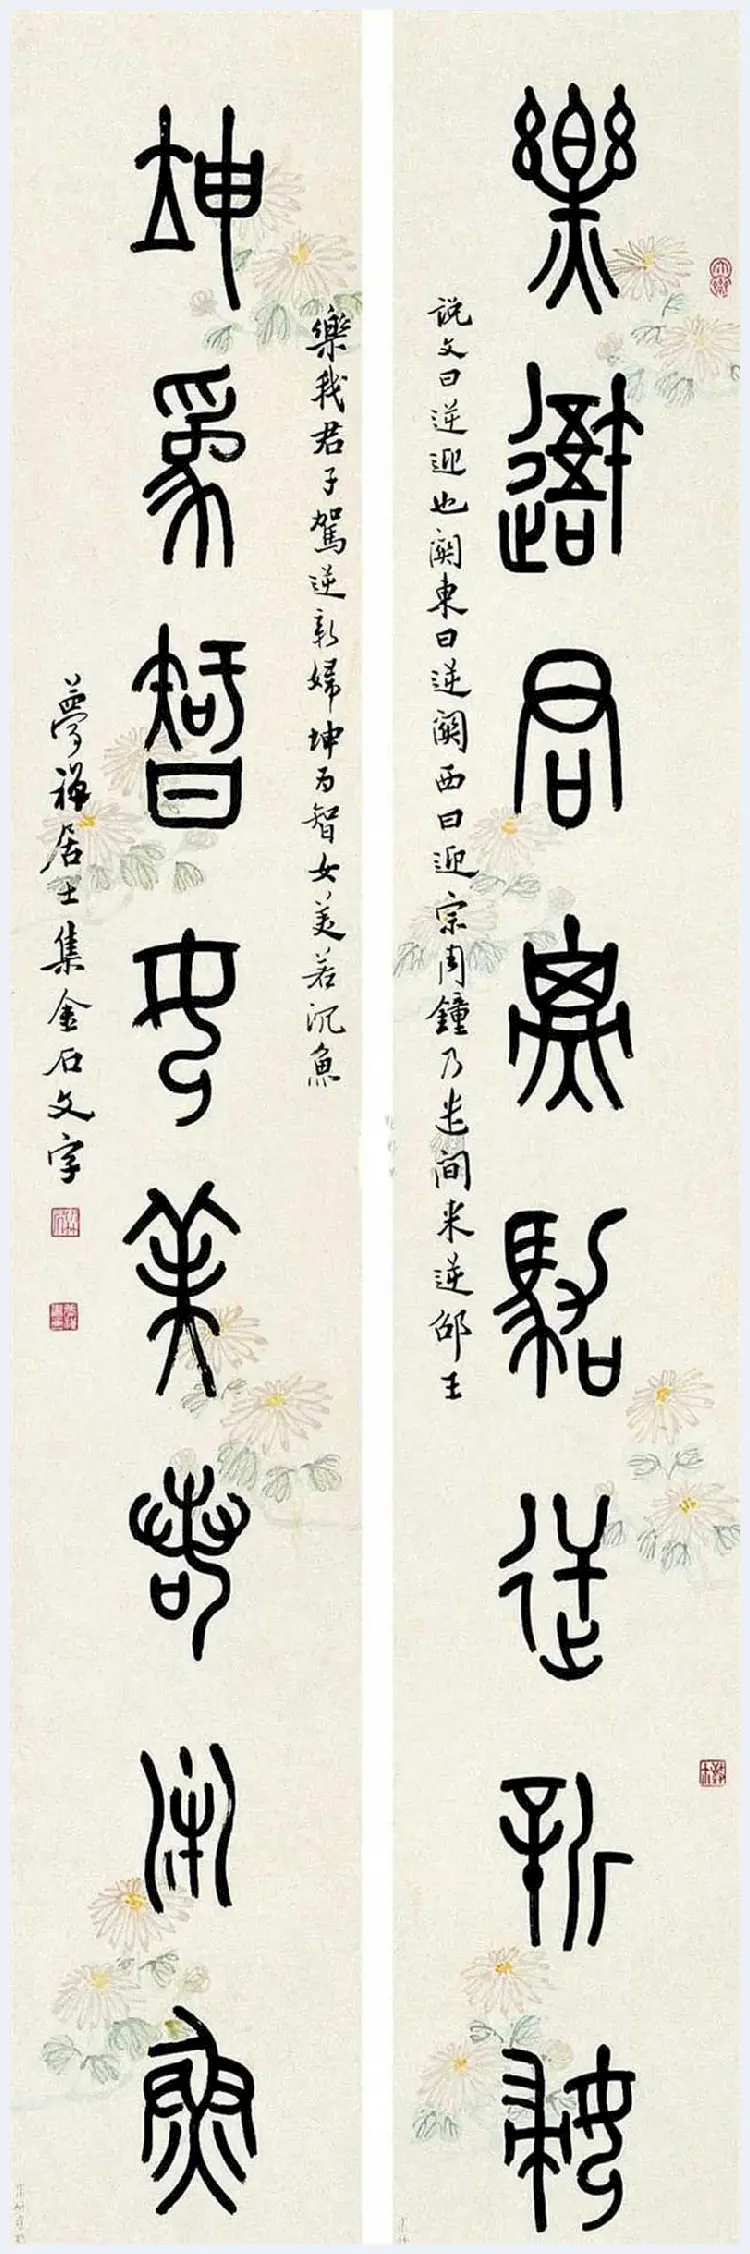 樂我君子駕逆新婦
說文曰逆迎也關東曰逆關西曰迎宗周鐘乃遣間來逆邵王
坤為智女美若沉魚
樂我君子駕逆新婦坤為智女美若沉魚
夢禅居士集金石文字